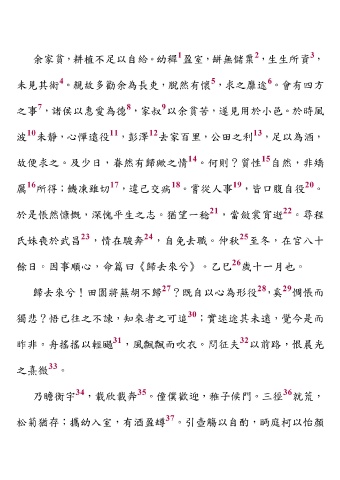 余家貧,耕植不足以自給。幼稚1盈室,缾無儲粟2,生生所資3,
未見其術4。親故多勸余為長吏,脫然有懷5,求之靡途6。會有四方
之事7,諸侯以惠愛為德8,家叔9以余貧苦,遂見用於小邑。於時風
波10未靜,心憚遠役11,彭澤12去家百里,公田之利13,足以為酒,
故便求之。及少日,眷然有歸歟之情14。何則?質性15自然,非矯
厲16所得;饑凍雖切17,違己交病18。嘗從人事19,皆口腹自役20。
於是悵然慷慨,深愧平生之志。猶望一稔21,當斂裳宵逝22。尋程
氏妹喪於武昌23,情在駿奔24,自免去職。仲秋25至冬,在官八十
餘日。因事順心,命篇曰《歸去來兮》。乙巳26歲十一月也。
歸去來兮!田園將蕪胡不歸27?既自以心為形役28,奚29惆悵而
獨悲?悟已往之不諫,知來者之可追30;實迷途其未遠,覺今是而
昨非。舟搖搖以輕颺31,風飄飄而吹衣。問征夫32以前路,恨晨光
之熹微33。
乃瞻衡宇34,載欣載奔35。僮僕歡迎,稚子候門。三徑36就荒,
松菊猶存;攜幼入室,有酒盈罇37。引壺觴以自酌,眄庭柯以怡顏